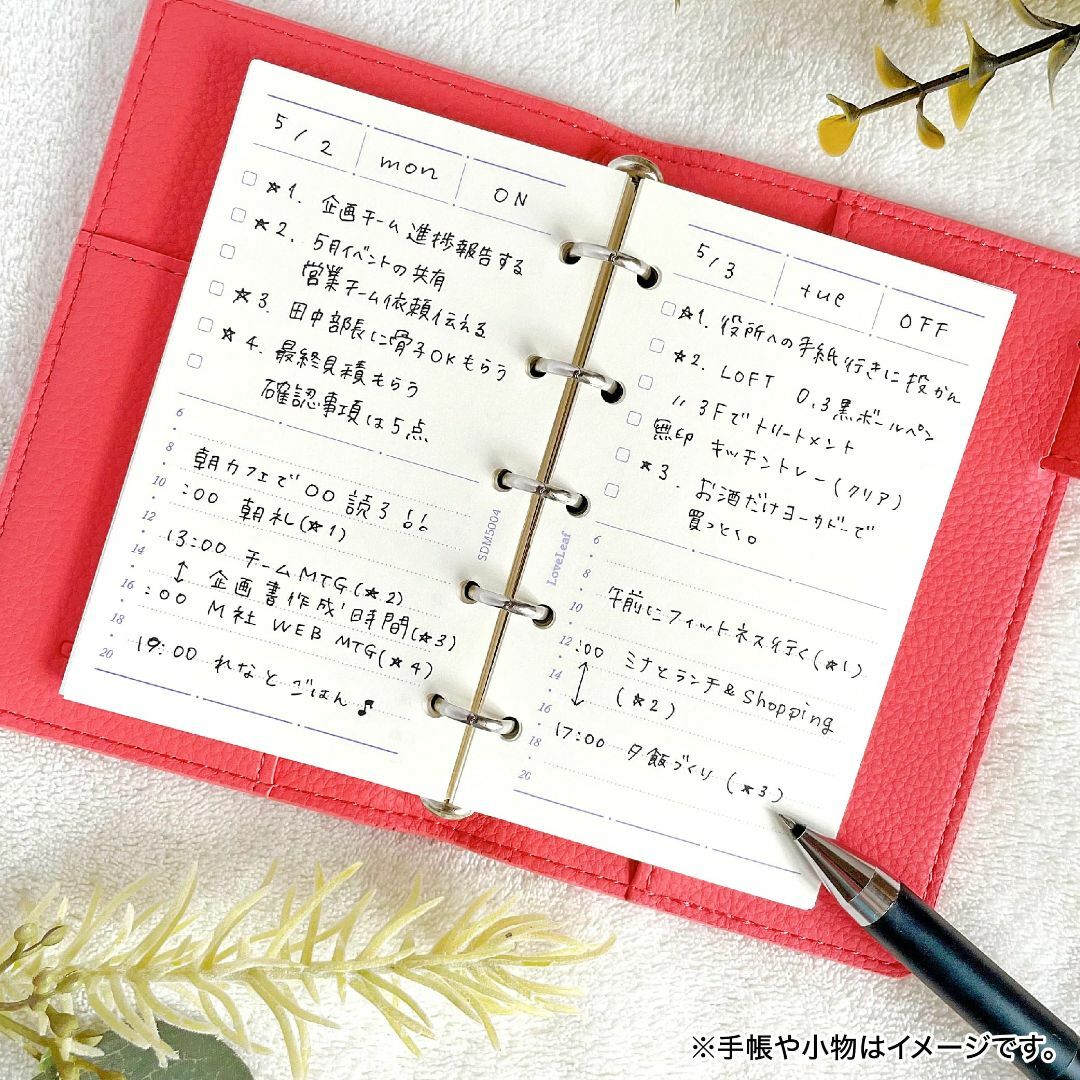 5/2 mon ON
☆1. 企画チーム進捗報告する
☆2. 5月イベントの共有
営業チーム依頼伝える
☆3. 田中部長に骨子OKもらう
☆4. 最終見積もらう
確認事項は5点
6
8
朝カフェで〇〇読る!!
10 :00 朝礼(☆1)
12
13:00 チームMTG(☆2)
14 ↕ 企画書作成1時間(☆3)
16 :00 M社 WEB MTG(☆4)
18
19:00 れなとごはん♪
20
SDM5004
5/3 tue OFF
☆1. 役所への手紙行きに投かん
☆2. LOFT 0.3黒ボールペン
〃 3Fでトリートメント
無印 キッチントレー(クリア)
☆3. お酒だけヨーカドーで
買っとく。
6
8
午前にフィットネス行く(☆1)
10
12 :00 ミナとランチ&Shopping
14 ↕ (☆2)
16
17:00 夕飯づくり(☆3)
18
20
LoveLeaf
※手帳や小物はイメージです。